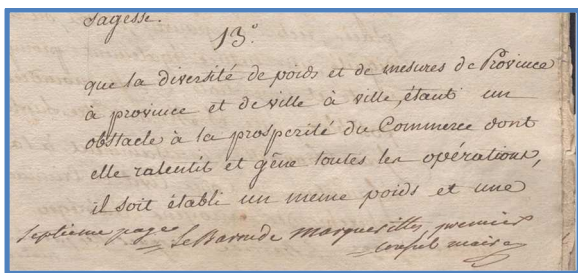 sagesse.
13.°
que la diversité de poids et de mesures de Province
à province et de ville à ville, étant un
obstacle à la prosperité du Commerce dont
elle ralentit et gêne toutes les opérations,
il soit établi un meme poids et une
septieme page Le Baron de Marguerittes, premier
consul maire